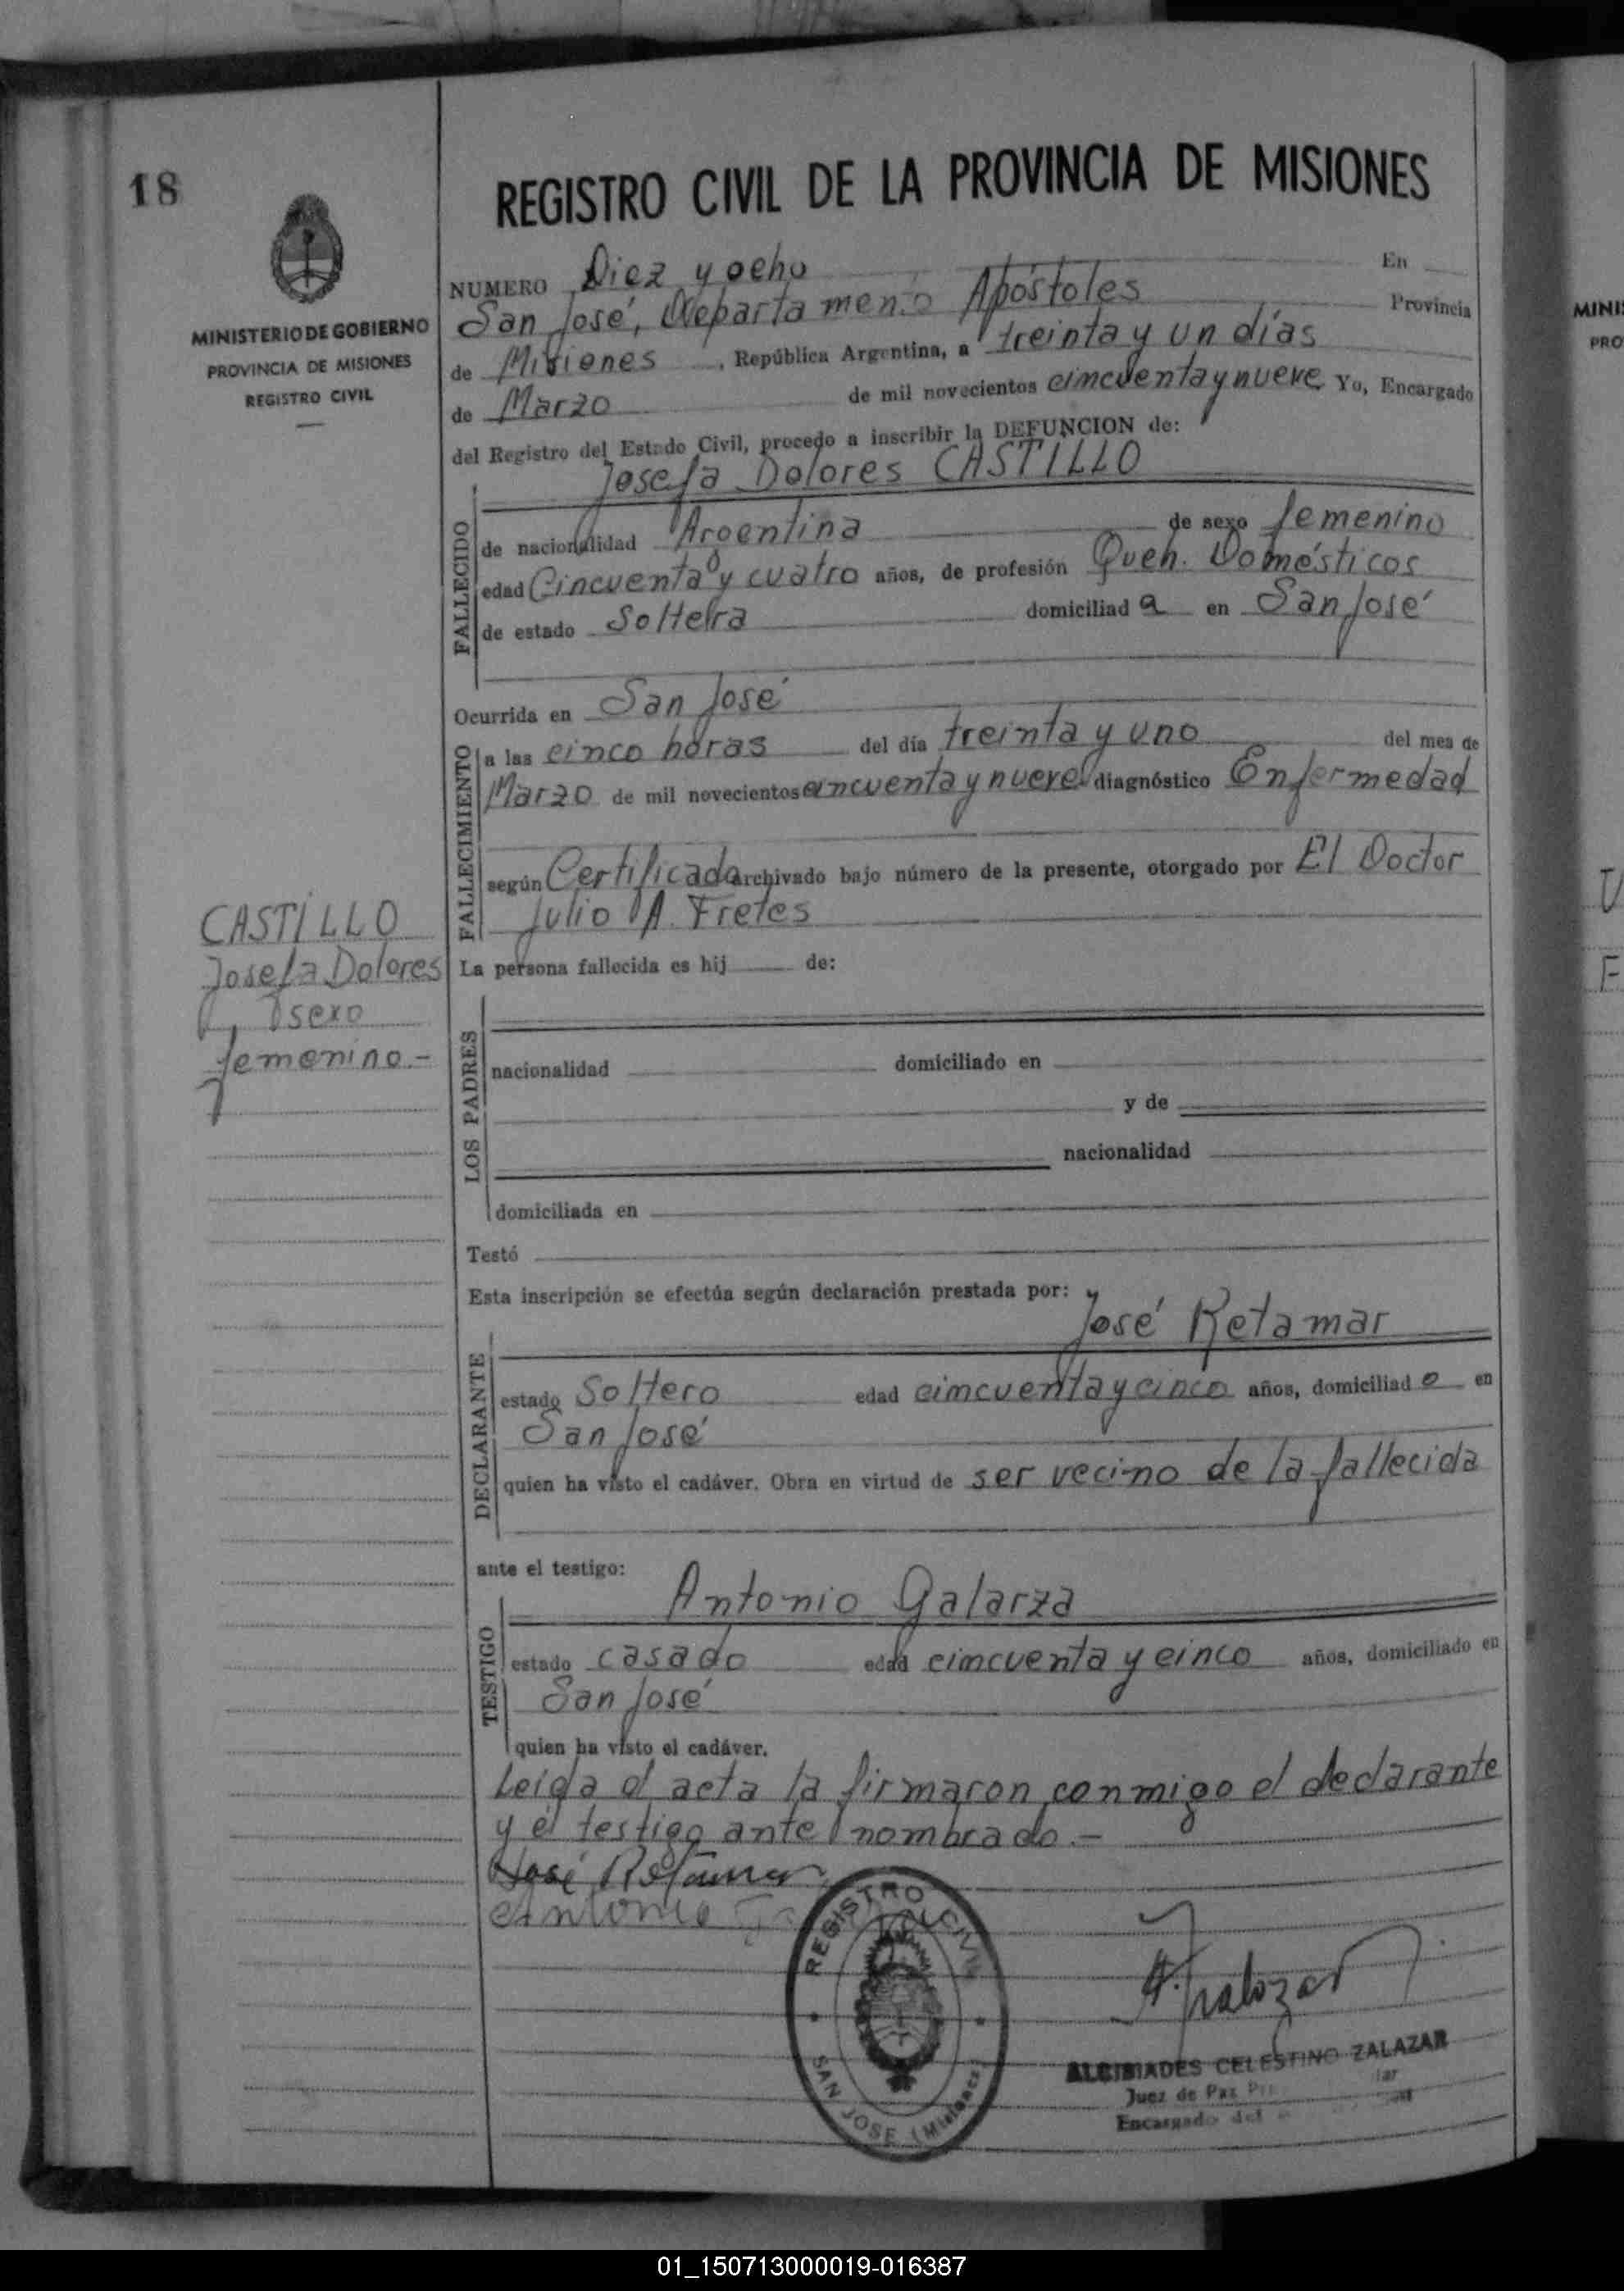 18
MINISTERIO DE GOBIERNO
PROVINCIA DE MISIONES
REGISTRO CIVIL
REGISTRO CIVIL DE LA PROVINCIA DE MISIONES
NUMERO Diez y ocho En
San José, Departamento Apóstoles Provincia
de Misiones, República Argentina, a treinta y un días
de Marzo de mil novecientos cimcuenta y nueve Yo, Encargado
del Registro del Estado Civil, procedo a inscribir la DEFUNCION de:
Josefa Dolores CASTILLO
FALLECIDO
de nacionalidad Argentina de sexo femenino
edad Cincuenta y cuatro años, de profesión Queh. Domésticos
de estado Soltera domiciliad a en San José
Ocurrida en San José
FALLECIMIENTO
a las cinco horas del día treinta y uno del mes de
Marzo de mil novecientos cincuenta y nueve diagnóstico Enfermedad
según Certificado archivado bajo número de la presente, otorgado por El Doctor
Julio A. Fretes
CASTILLO
Josefa Dolores
, sexo
femenino.-
La persona fallecida es hij de:
LOS PADRES
nacionalidad domiciliado en
y de
nacionalidad
domiciliada en
Testó
Esta inscripción se efectúa según declaración prestada por:
José Retamar
DECLARANTE
estado Soltero edad cimcuenta y cinco años, domiciliad o en
San José
quien ha visto el cadáver. Obra en virtud de ser vecino de la fallecida
ante el testigo:
Antonio Galarza
TESTIGO
estado casado edad cimcuenta y cinco años, domiciliado en
San José
quien ha visto el cadáver.
Leída el acta la firmaron conmigo el declarante
y el testigo ante nombrado.-
José Retamar
Antonio
REGISTRO CIVIL
SAN JOSE (Misiones)
A. Zalazar
ALCIBIADES CELESTINO ZALAZAR
Juez de Paz
Encargado del
MINI
PRO
01_150713000019-016387